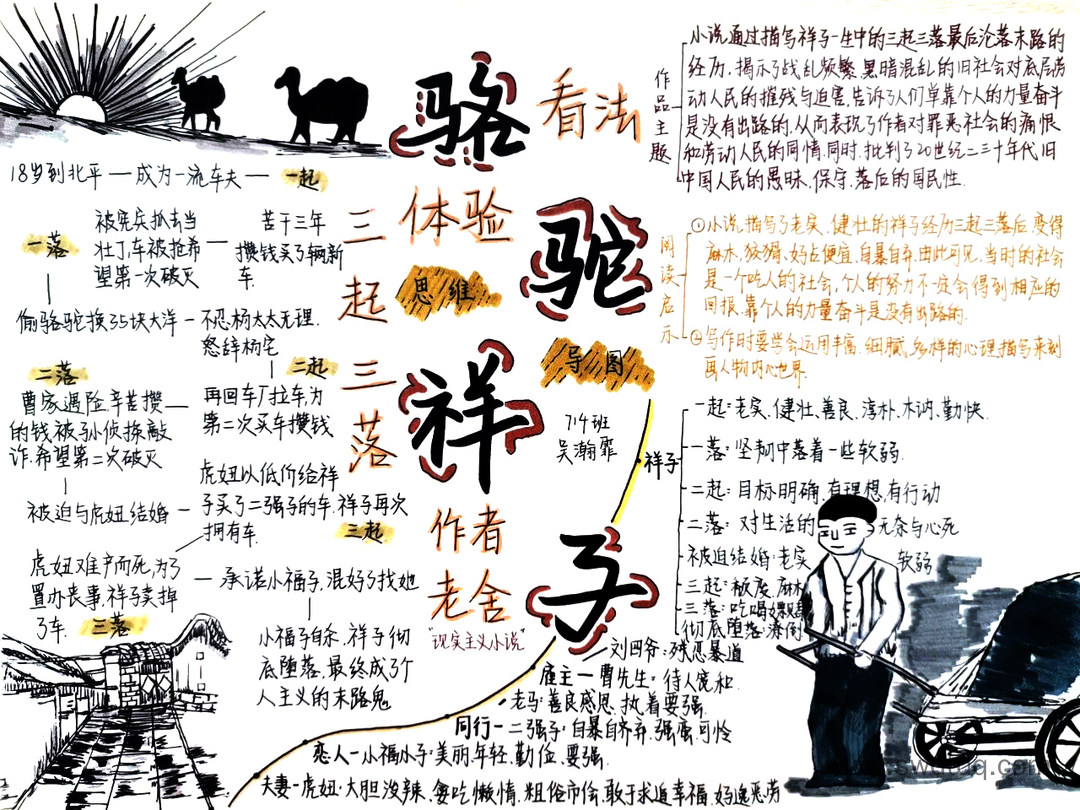 骆
驼
祥
子
看法
体验
思维
导图
三
起
三
落
作者
老舍
"现实主义小说"
714班
吴瀚霏
18岁到北平—成为一流车夫—一起
苦干三年
攒钱买了辆新
车.
一落
被宪兵抓去当
壮丁,车被抢希
望第一次破灭
偷骆驼换35块大洋—不忍杨太太无理.
怒辞杨宅
二起
再回车厂拉车,为
第二次买车攒钱
二落
曹家遇险,辛苦攒
的钱被孙侦探敲
诈.希望第二次破灭
被迫与虎妞结婚
虎妞以低价给祥
子买了二强子的车.祥子再次
拥有车.
三起
虎妞难产而死,为了
置办丧事,祥子卖掉
了车.
三落
承诺小福子,混好了找她
小福子自杀.祥子彻
底堕落.最终成了个
人主义的末路鬼
作品主题
小说通过描写祥子一生中的三起三落最后沦落末路的
经历.揭示了战乱频繁.黑暗混乱的旧社会对底层劳
动人民的摧残与迫害.告诉了人们单靠个人的力量奋斗
是没有出路的.从而表现了作者对罪恶社会的痛恨
和劳动人民的同情.同时.批判了20世纪二三十年代旧
中国人民的愚昧.保守.落后的国民性.
阅读启示
①小说.描写了老实、健壮的祥子经历三起三落后.变得
麻木.狡猾、好占便宜.自暴自弃.由此可见.当时的社会
是一个吃人的社会,个人的努力不一定会得到相应的
回报.靠个人的力量奋斗是没有出路的.
②写作时要学会运用丰富.细腻.多样的心理描写来刻
画人物内心世界.
祥子
一起:老实.健壮.善良.淳朴.木讷.勤快.
一落:坚韧中落着一些软弱.
二起:目标明确.有理想.有行动
二落:对生活的 无奈与心死
被迫结婚:老实 软弱
三起:极度.麻木
三落:吃喝嫖
彻底堕落:潦倒
雇主
刘四爷:残忍暴道
曹先生:待人宽和.
同行
老马:善良感恩.执着要强.
二强子:自暴自弃.强蛮.可怜
恋人—小福小子:美丽.年轻.勤俭.要强.
夫妻—虎妞:大胆泼辣.好吃懒惰.粗俗市侩.敢于求追幸福.好逸恶劳